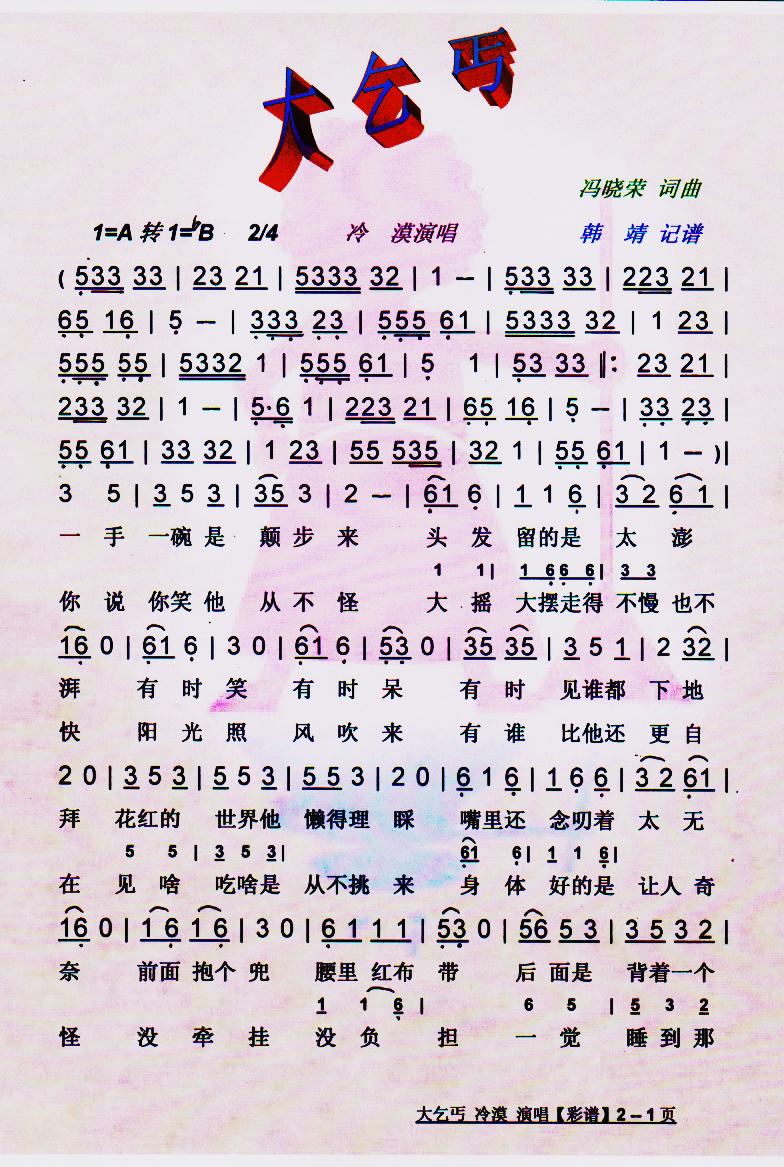 大乞丐
冯晓荣 词曲
1=A 转 1=♭B 2/4 冷 漠演唱 韩 靖 记谱
( 533 33 | 23 21 | 5333 32 | 1 — | 533 33 | 223 21 |
65 16 | 5 — | 333 23 | 555 61 | 5333 32 | 1 23 |
555 55 | 5332 1 | 555 61 | 5 1 | 53 33 ‖: 23 21 |
233 32 | 1 — | 5·6 1 | 223 21 | 65 16 | 5 — | 33 23 |
55 61 | 33 32 | 1 23 | 55 535 | 32 1 | 55 61 | 1 — )|
3 5 | 3 5 3 | 35 3 | 2 — | 61 6 | 1 1 6 | 3 2 6 1 |
一 手 一碗 是 颠 步 来 头 发 留的是 太 澎
1 1| 1 66 6| 3 3
你 说 你笑 他 从 不 怪 大 摇 大摆走得 不慢 也不
16 0 | 61 6 | 3 0 | 61 6 | 53 0 | 35 35 | 3 5 1 | 2 32 |
湃 有 时 笑 有 时 呆 有 时 见谁都 下 地
快 阳 光 照 风 吹 来 有 谁 比他还 更 自
2 0 | 3 5 3 | 5 5 3 | 5 5 3 | 2 0 | 6 1 6 | 1 6 6 | 3 2 61 |
拜 花红的 世界他 懒得理 睬 嘴里还 念叨着 太 无
5 5 | 3 5 3| 61 6| 1 1 6|
在 见 啥 吃啥是 从不挑 来 身 体 好的是 让人 奇
16 0 | 1 6 1 6 | 3 0 | 6 1 1 1 | 53 0 | 56 5 3 | 3 5 3 2 |
奈 前面 抱个 兜 腰里 红布 带 后 面是 背着一个
1 1 6 | 6 5 | 5 3 2
怪 没 牵 挂 没 负 担 一 觉 睡 到 那
大乞丐 冷漠 演唱【彩谱】2－1页